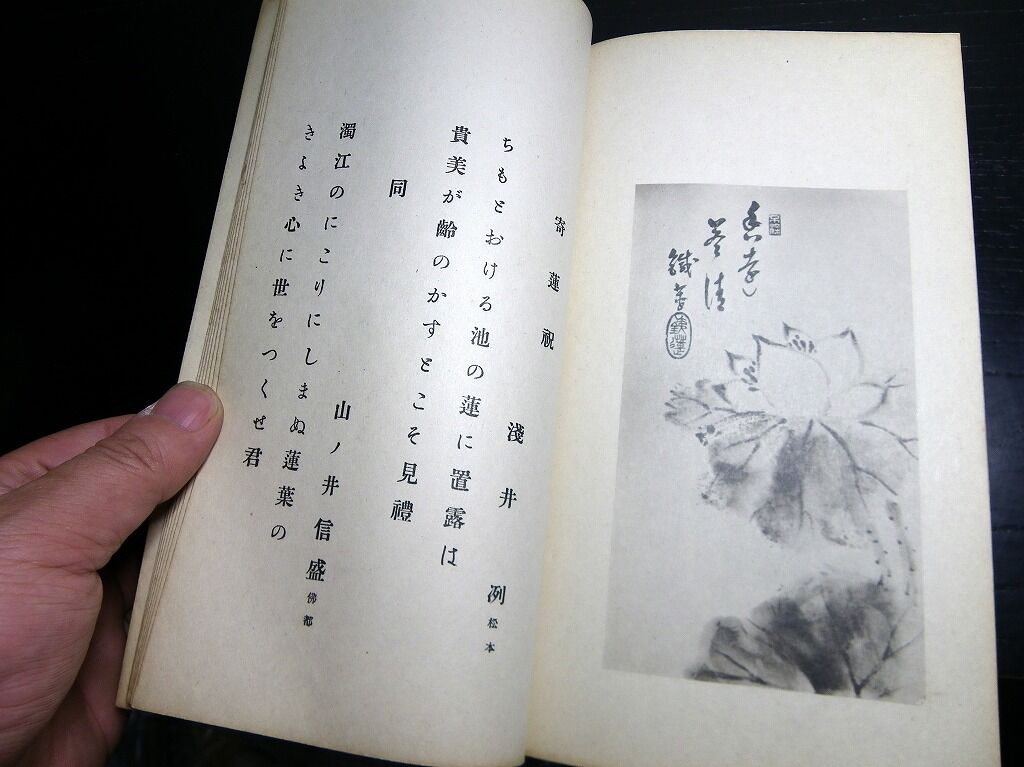 寄蓮祝
淺井洌 松本
ちもとおける池の蓮に置露は
貴美が齢のかすとこそ見禮
同
山ノ井信盛 佛都
濁江のにこりにしまぬ蓮葉の
きよき心に世をつくせ君